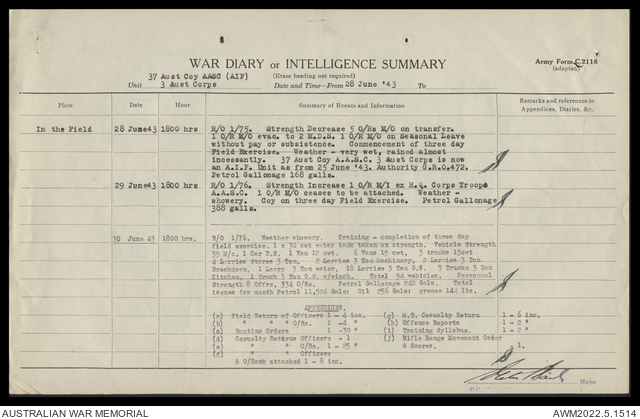 WAR DIARY or INTELLIGENCE SUMMARY
Army Form C.2118
(adapted)
37 Aust Coy AASC (AIF)
(Erase heading not required)
Unit 3 Aust Corps
Date and Time—From 28 June '43 To
Place Date Hour Summary of Events and Information Remarks and references to Appendices, Diaries, &c.
In the Field 28 June43 1800 hrs R/O 1/75. Strength Decrease 5 O/Rs M/O on transfer.
1 O/R M/O evac. to 2 M.D.S. 1 O/R M/O on Seasonal Leave
without pay or subsistence. Commencement of three day
Field Exercise. Weather - very wet, rained almost
incessantly. 37 Aust Coy A.A.S.C. 3 Aust Corps is now
an A.I.F. Unit as from 25 June '43. Authority G.R.O.472.
Petrol Gallonage 168 galls.
29 June43 1800 hrs R/O 1/76. Strength Increase 1 O/R M/I ex H.Q. Corps Troops
A.A.S.C. 1 O/R M/O ceases to be attached. Weather -
showery. Coy on three day Field Exercise. Petrol Gallonage
388 galls.
30 June 43 1800 hrs. R/O 1/76. Weather showery. Training - completion of three day
field exercise. 1 x 30 cwt water tank taken on strength. Vehicle Strength
39 M/c. 1 Car D.S. 1 Van 12 cwt. 6 Vans 15 cwt. 3 trucks 15cwt
4 Lorries Stores 3 Ton. 2 Lorries 3 Ton Machinery. 2 Lorries 3 Ton
Breakdown. 1 Lorry 3 Ton water, 18 Lorries 3 Ton G.S. 3 Trucks 3 Ton
Kitchen. 1 Truck 3 Ton G.S. w/winch. Total 84 vehicles. Personnel
Strength 8 Offrs. 334 O/Rs. Petrol Gallonage 240 Gals. Total
issues for month Petrol 11,524 Gals: Oil 256 Gals: grease 144 lbs.
APPENDICES.
(a) Field Return of Officers 1 - 4 inc.
(b) " " " O/Rs. 1 -4 "
(c) Routine Orders 1 -30 "
(d) Casualty Returns Officers - 1
(e) " " O/Rs. 1 - 25 "
(f) " " Officers
& O/Rank attached 1 - 8 inc.
(g) M.T. Casualty Return 1 - 6 inc.
(h) Offence Reports 1 - 2 "
(i) Training Syllabus. 1 - 2 "
(j) Rifle Range Movement Order
& Scores. - 1.
Major
AUSTRALIAN WAR MEMORIAL
AWM2022.5.1514